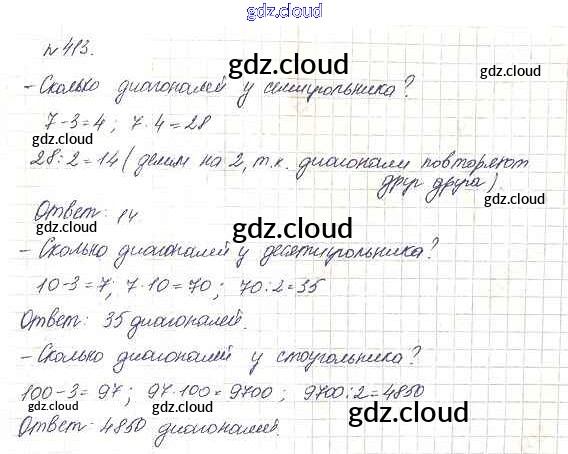 gdz.cloud
№ 413.
gdz.cloud
- Сколько диагоналей у семиугольника?
gdz.cloud
7-3=4; 7·4=28
28:2=14 (делим на 2, т.к. диагонали повторяют
друг друга).
gdz.cloud
Ответ: 14
gdz.cloud
- Сколько диагоналей у десятиугольника?
gdz.cloud
10-3=7; 7·10=70; 70:2=35
Ответ: 35 диагоналей.
gdz.cloud
- Сколько диагоналей у стоугольника?
100-3=97; 97·100=9700; 9700:2=4850
gdz.cloud
Ответ: 4850 диагоналей.
gdz.cloud